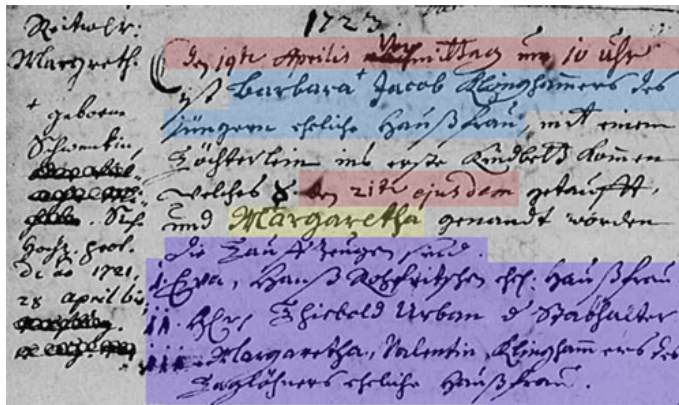 1723.
Reitwlr.
Margreth.
+ geborne
Schwentin,
Sich.
hochz. prot.
de ao 1721,
28 april bis,
den 19te Aprilis Vormittag um 10 uhr
ist Barbara + Jacob Klinghammers des
jüngern eheliche Haußfrau, mit einem
Töchterlein ins erste Kindbett kommen
welches den 21te ejusdem getaufft,
und Margaretha genandt worden
die Tauffzeugen sind.
i. Eva, Hanß Rohfritschen ehl: Haußfrau
ii. Hr. Thiebold Urban d Stabhalter
iii. Margaretha, Valentin Klinghammers des
Taglöhners eheliche Haußfrau.